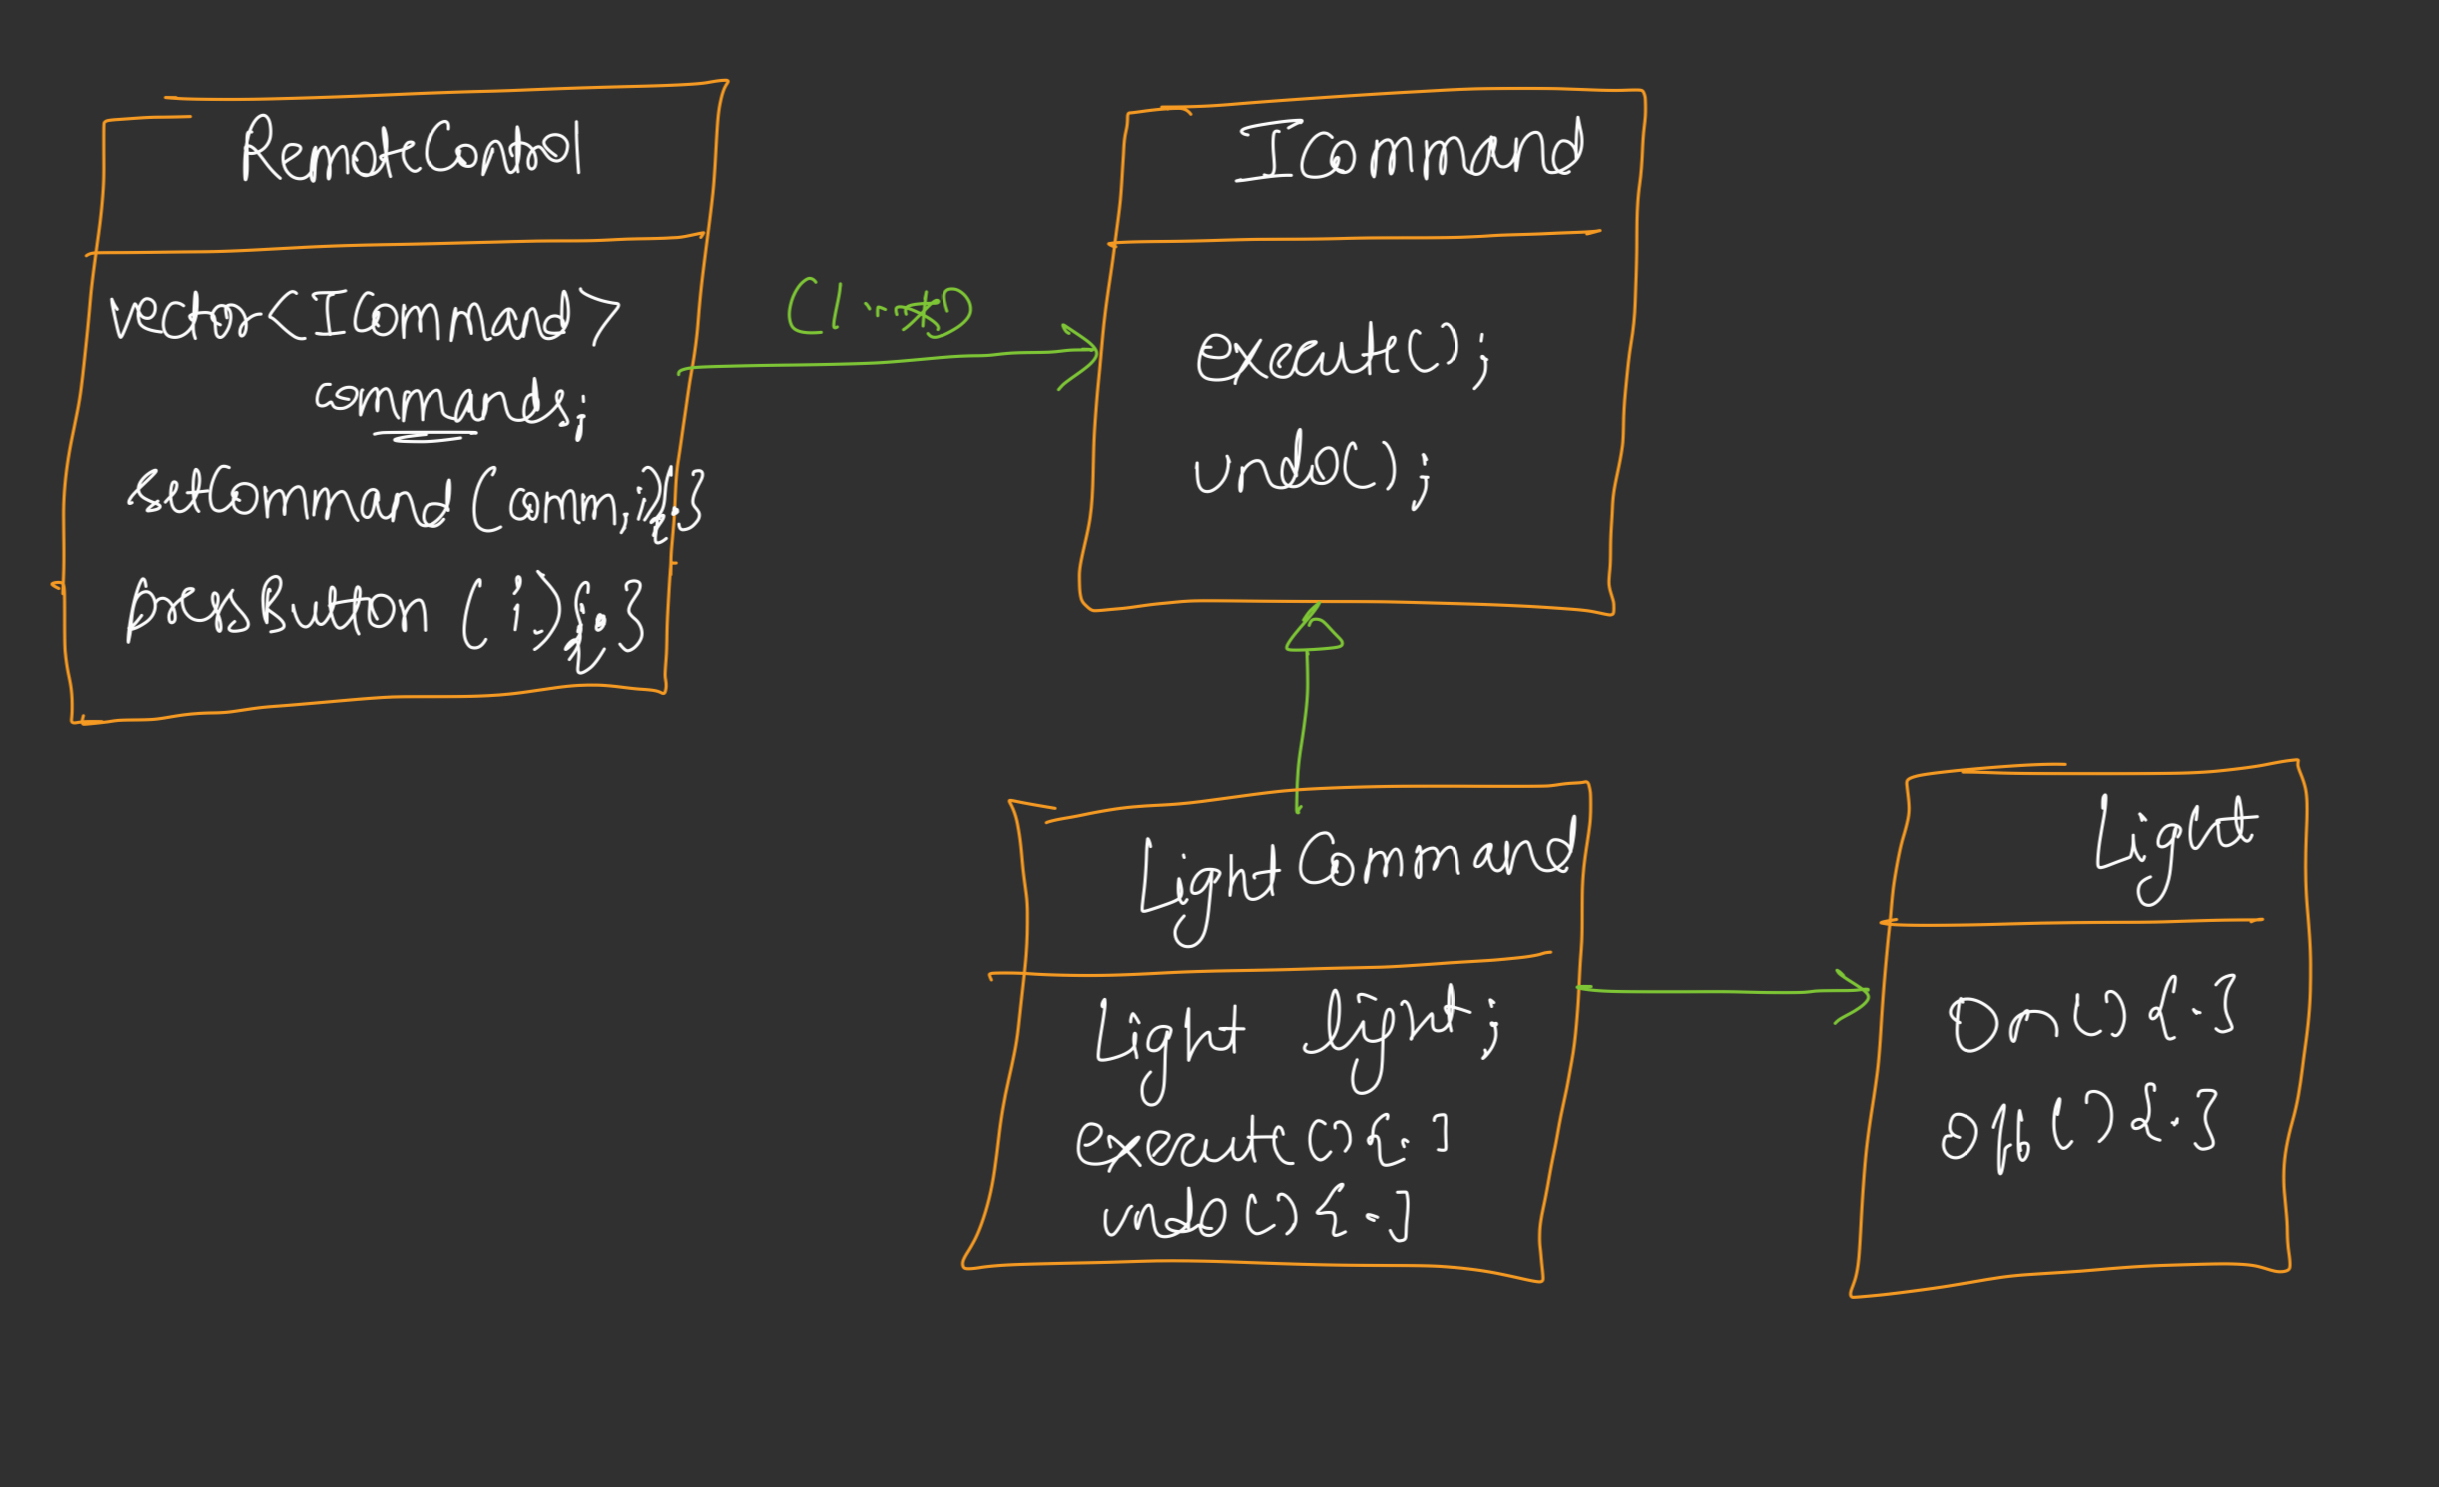 RemoteControl
vector<ICommand>
commands;
setCommand(comm, i){.}
pressButton(i){.}
(1...*)
ICommand
execute();
undo();
LightCommand
Light light;
execute(){.}
undo(){.}
Light
on(){.}
off(){.}